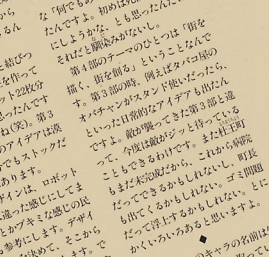 な「何でもあ
たんですよ。初めは死
にしようかな、とも思ったんだ
それだと馴染みがないし。
第4部のテーマのひとつは「街を
描く、街を創る」ということなんで
す。第3部の時、例えばタバコ屋の
オバチャンがスタンド使いだったら、
といった日常的なアイデアも出たん
ですよ。敵が襲ってきた第3部と違
って、今度は敵がジッと待っている
こともできるわけです。また杜王町
もまだ未完成だから、これから病院
だってできるかもしれないし、町長
も出てくるかもしれない。ゴミ問題
だって浮上するかもしれない。とに
かくいろいろあると思いますよ。
◆
から
るん
に結びつ
を作って
ット22枚分
思ったんです
ね(笑)。第3
のアイデアは漠
でもストックだ
あります。
ザインは、ロボット
違った感じにしてま
とかブキミな感じの民
も参考にします。デザイ
を決めて、そこから
にします。で
のキャラの名前は